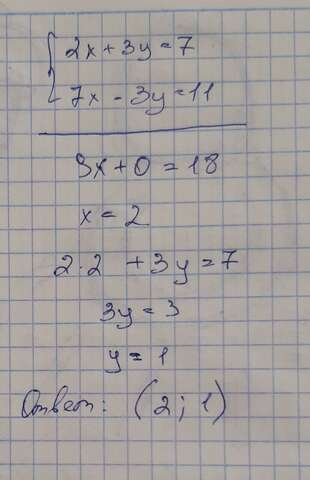 2x + 3y = 7
7x - 3y = 11
9x + 0 = 18
x = 2
2 · 2 + 3y = 7
3y = 3
y = 1
Ответ: (2; 1)